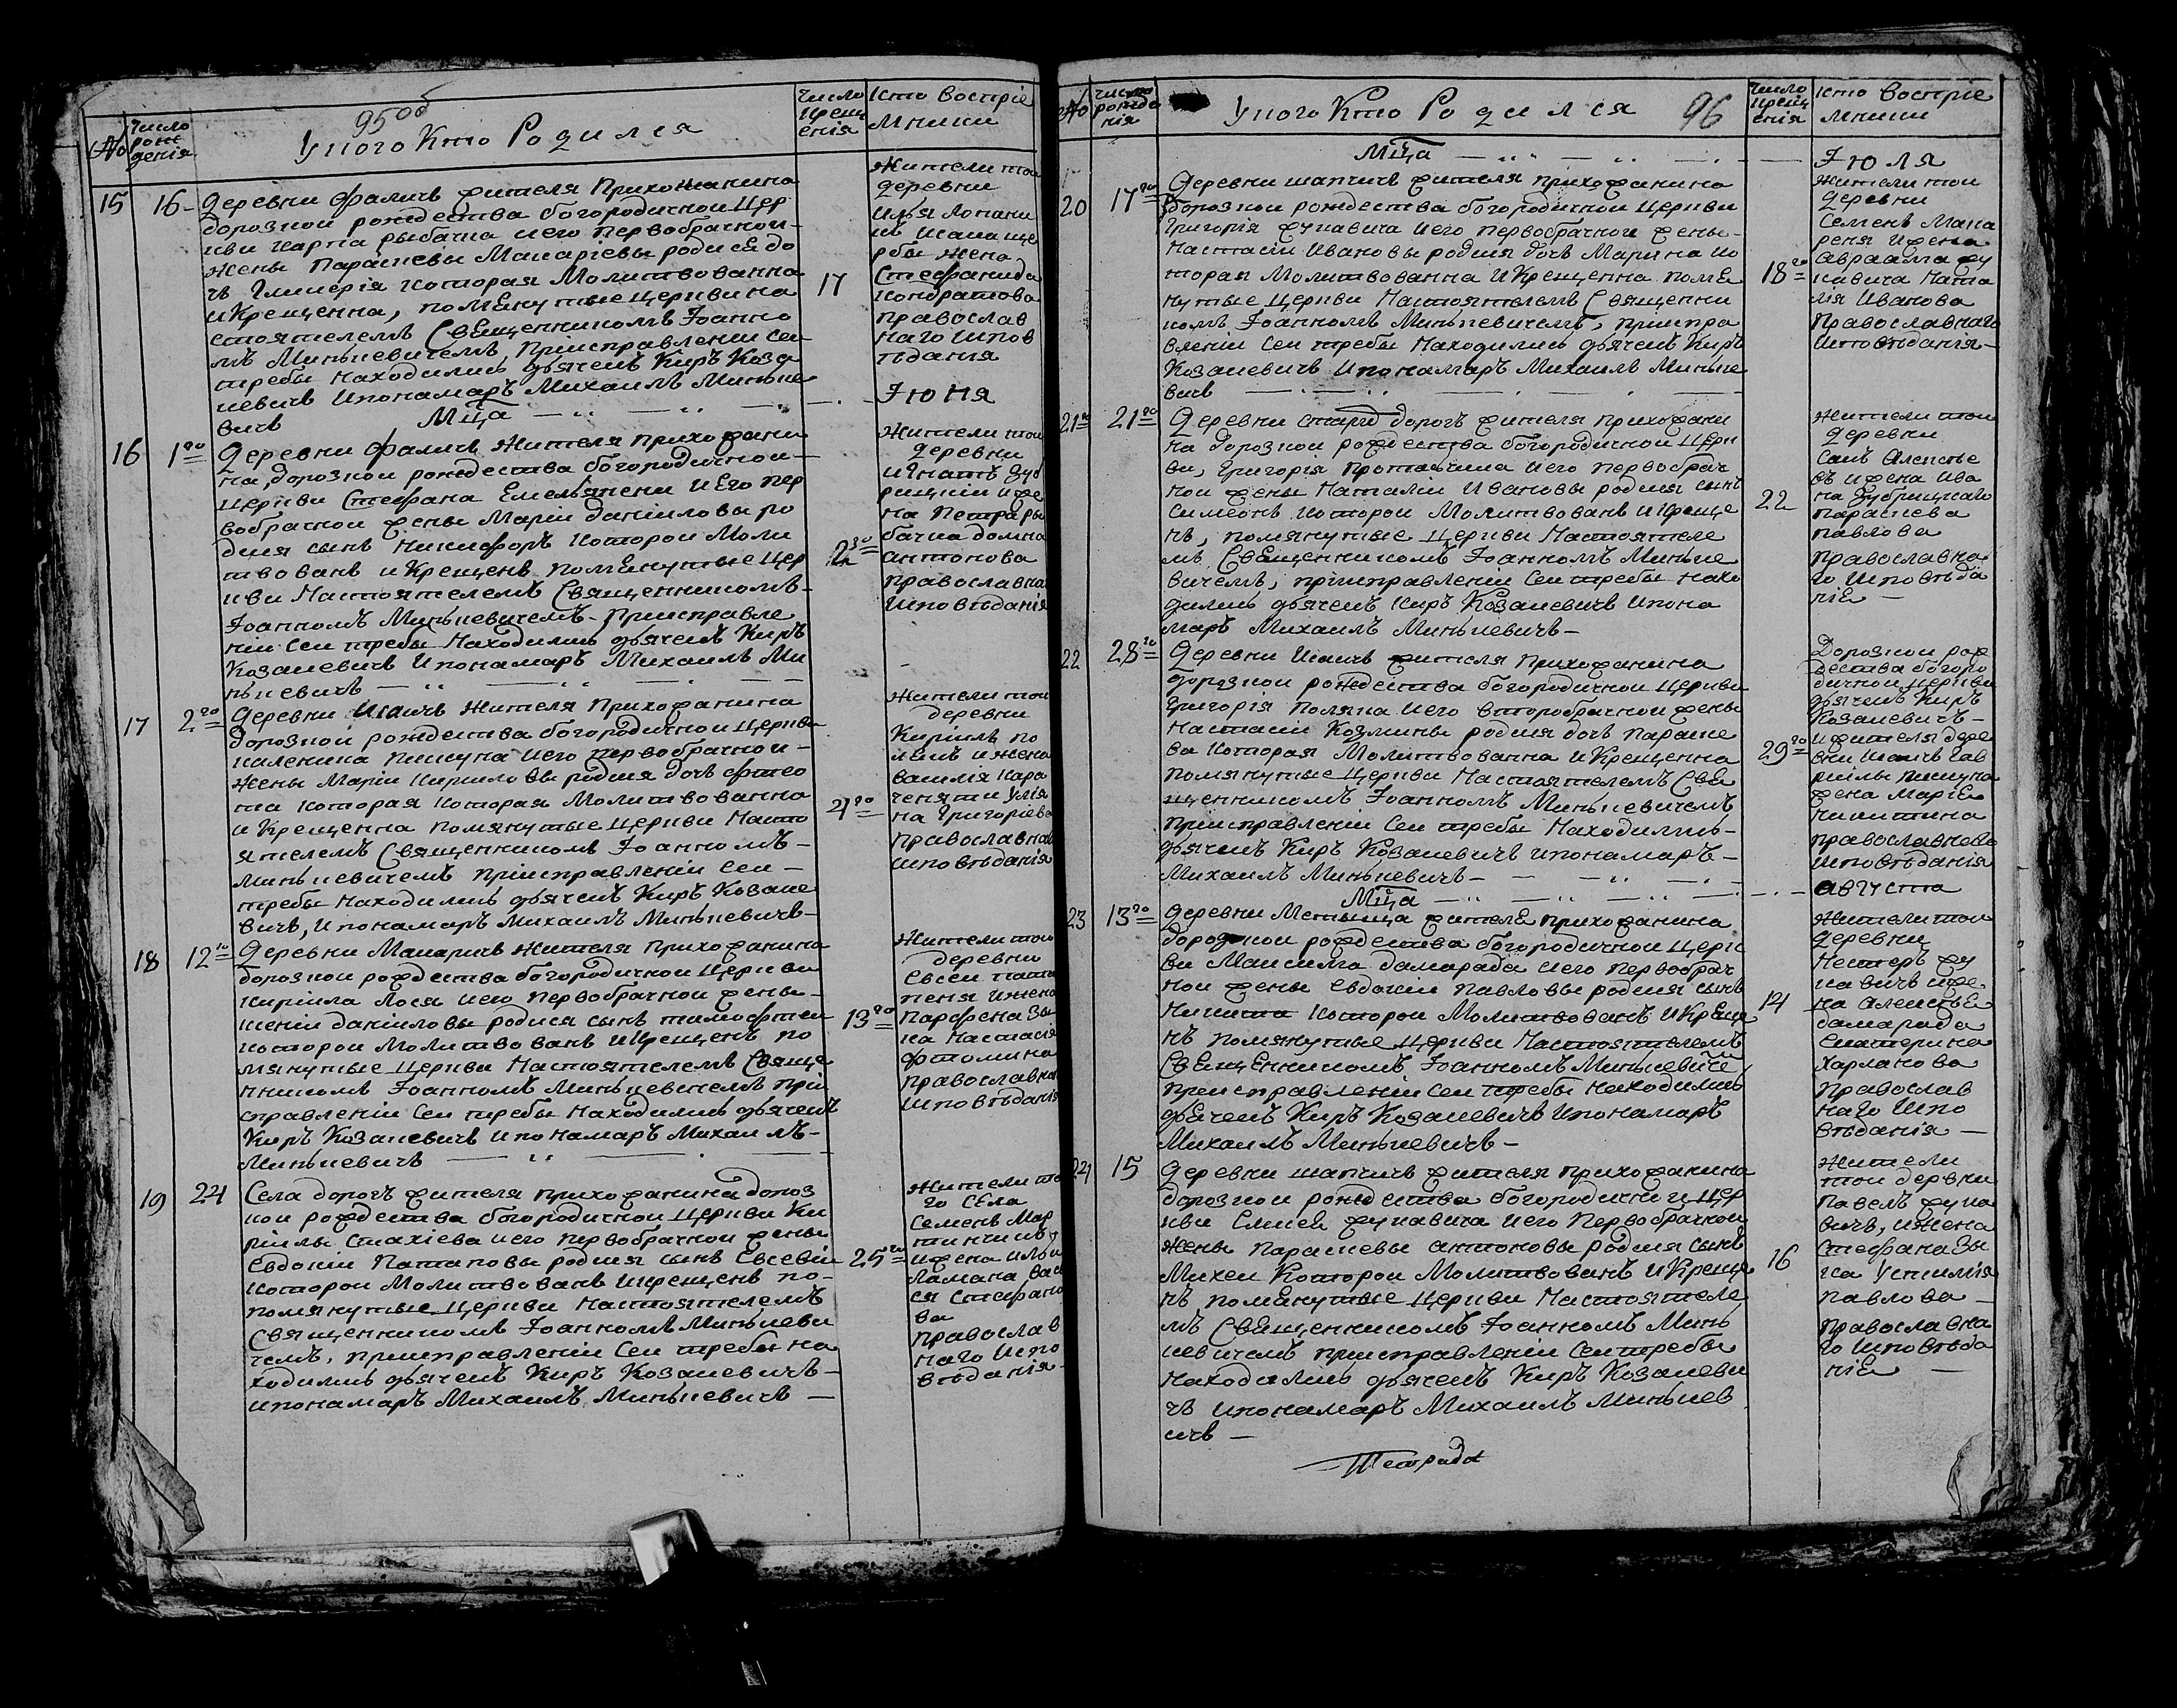 95 об
№
число рож денія
У кого Кто Родился
число крещ енія
Кто Воспріе мники
15
16
Деревни фаличъ жителя Прихожанина
дорозкои рождества богородичнои Цер
кви карпа рыбачка иего первобрачнои
жены Параскевы Макаріевы родися до
чъ Гликерія которая Молитвованна
и Крещенна, помянутые Церкви на
стоятелемъ Священникомъ Іоанно
мъ Минкевичемъ, приисправленіи сеи
требы находились дьячекъ Киръ Коза
кевичъ и пономаръ Михаилъ Минке
вичъ
17
Жители тои
деревни
Илья Лопани
жена
Стефанида
Кондратова
православ
наго испов
ѣданія
Мца
Іюня
16
1го
Деревни фаличъ Жителя прихожани
на, дорозкои рождества богородичнои
церкви Стефана Емельянени и Его пер
вобрачнои жены Маріи даніиловы ро
дился сынъ Никифоръ которои Моли
твованъ и Крещенъ помянутые Цер
кви Настоятелемъ Священникомъ
Іоанномъ Минкевичемъ приисправле
ніи сеи требы Находились дьячекъ Киръ
Козакевичъ и пономаръ Михаилъ Ми
нкевичъ
2го
Жители тои
деревни
игнатъ Дуб
рицкіи и же
на Петра ры
бачка домна
антонова
православна
исповѣданія
17
2го
Деревни Исаичъ Жителя Прихожанина
дорозкои рождества богородичнои Церкви
каленика пискуна иего первобрачнои
жены Маріи кириловы родися дочъ фтео
та которая которая Молитвованна
и Крещенна помянутые церкви Насто
ятелемъ Священникомъ Іоанномъ
минкевичемъ приисправленіи сеи
требы находились дьячекъ Киръ Козаке
вичъ, и пономаръ Михаилъ Минкевичъ
4го
Жители тои
деревни
Кирилъ по
лякъ и жена
василя кара
ченяти Улія
на Григоріева
православна
исповѣданія
18
12го
Деревни Макаричъ Жителя Прихожанина
дорозкои рождества богородичнои Церкви
кирила Лося иего первобрачнои жены
ксеніи даніиловы родися сынъ тимофтеи
которои Молитвованъ и Крещенъ по
мянутые Церкви Настоятелемъ Свяще
нникомъ Іоанномъ Минкевичемъ при
справленіи сеи требы находились дьячекъ
Киръ Козакевичъ и пономаръ Михаилъ
Минкевичъ
13го
Жители тои
деревни
Евсеи пота
пеня и жена
Парфена Зы
ка Настасія
фтомина
православна
исповѣданія
19
24
Села дорогъ жителя прихожанина дороз
кои рождества богородичнои Церкви Ки
рилы Стахіева иего первобрачнои жены
Евдокіи Патаповы родися сынъ Евсевіи
которои Молитвованъ и крещенъ по
помянутые Церкви Настоятелемъ
Священникомъ Іоанномъ Минкеви
чемъ, приисправленіи сеи требы на
ходились дьячекъ Киръ Козакевичъ
и пономаръ Михаилъ Минкевичъ
25го
Жители то
го села
Семенъ Мар
тинчикъ
и жена ильи
Ламана вас
ся Стефано
ва
православ
наго испо
вѣданія
№
число рожде нія
У кого Кто Родился
96
число крещ енія
Кто Воспріе мники
Мца
Іюля
20
17го
Деревни шапчичъ жителя прихожанина
дорозкои рождества богородичнои Церкви
Григорія жукавича иего первобрачнои жены
Настасіи Ивановы родися дочъ Марина ко
торая Молитвованна и Крещенна помя
нутые Церкви Настоятелемъ Священни
комъ Іоанномъ Минкевичемъ, приипра
вленіи сеи требы Находились дьячекъ Киръ
Козакевичъ и пономаръ Михаилъ Минке
вичъ
18го
Жители тои
деревни
Семенъ Мака
реня и жена
Авраама жу
кавича Ната
лія Иванова
Православнаго
исповѣданія
21го
21го
Деревни стары дорогъ жителя прихожани
на дорозкои рождества богородичнои Церк
ви, Григорія Протавчика иего первобрач
нои жены Наталіи Ивановы родися сынъ
Симеонъ которои Молитвованъ и Креще
нъ, помянутые Церкви Настоятеле
мъ Священникомъ Іоанномъ Минке
вичемъ, приисправленіи сеи требы нахо
дились дьячекъ киръ Козакевичъ и поно
маръ Михаилъ Минкевичъ
22
Жители тои
деревни
сакъ Алексѣе
въ и жена ива
на дубрицкаго
параскева
павлова
православна
го исповѣда
ніе
22
28го
Деревни Исаичъ жителя прихожанина
дорозкои рождества богородичнои Церкви
Григорія поляка иего второбрачнои жены
Настасіи Козмины родися дочъ параске
ва которая Молитвованна и Крещенна
помянутые Церкви Настоятелемъ Свя
щенникомъ Іоанномъ Минкевичемъ
приисправленіи сеи требы Находились
дьячекъ Киръ Козакевичъ и пономаръ
Михаилъ Минкевичъ
29го
Дорозкои рож
дества богоро
дичнои церкви
дьячекъ Киръ
Козакевичъ
и жителя дере
вни Исаичъ Гав
рилы пискуна
жена Марія
Никитина
православнаго
исповѣданія
Мца
августа
23
13го
Деревни Метявица жителе прихожанина
дорозкои рождества богородичнои Церк
ви Максима дамарада иего первобрач
нои жены Евдокіи Павловы родися сынъ
Никита которои Молитвованъ и Креще
нъ помянутые Церкви Настоятелемъ
Священникомъ Іоанномъ Минкевиче
приисправленіи сеи требы находились
дьячекъ Киръ Козакевичъ и пономаръ
Михаилъ Минкевичъ
14
Жители тои
деревни
Нестеръ жу
кавичъ и же
на Алексѣе
дамарада
Екатерина
Харланова
православ
наго испо
вѣданія
24
15
Деревни шапчичъ жителя прихожанина
дорозкои рождества богородичнеи Цер
кви Елисея жукавича иего первобрачнои
жены Параскевы антоновы родися сынъ
Михеи Которои Молитвованъ и Креще
нъ помянутые Церкви Настоятеле
мъ Священникомъ Іоанномъ Минь
кевичемъ приисправленіи сеи требы
находились дьячекъ Киръ Козакеви
чъ и пономаръ Михаилъ Минькев
ичъ
16
Жители
тои дервни
Павелъ жука
вичъ, и жена
Стефана Зы
ка Устилія
павлова
православна
го исповѣда
ніе